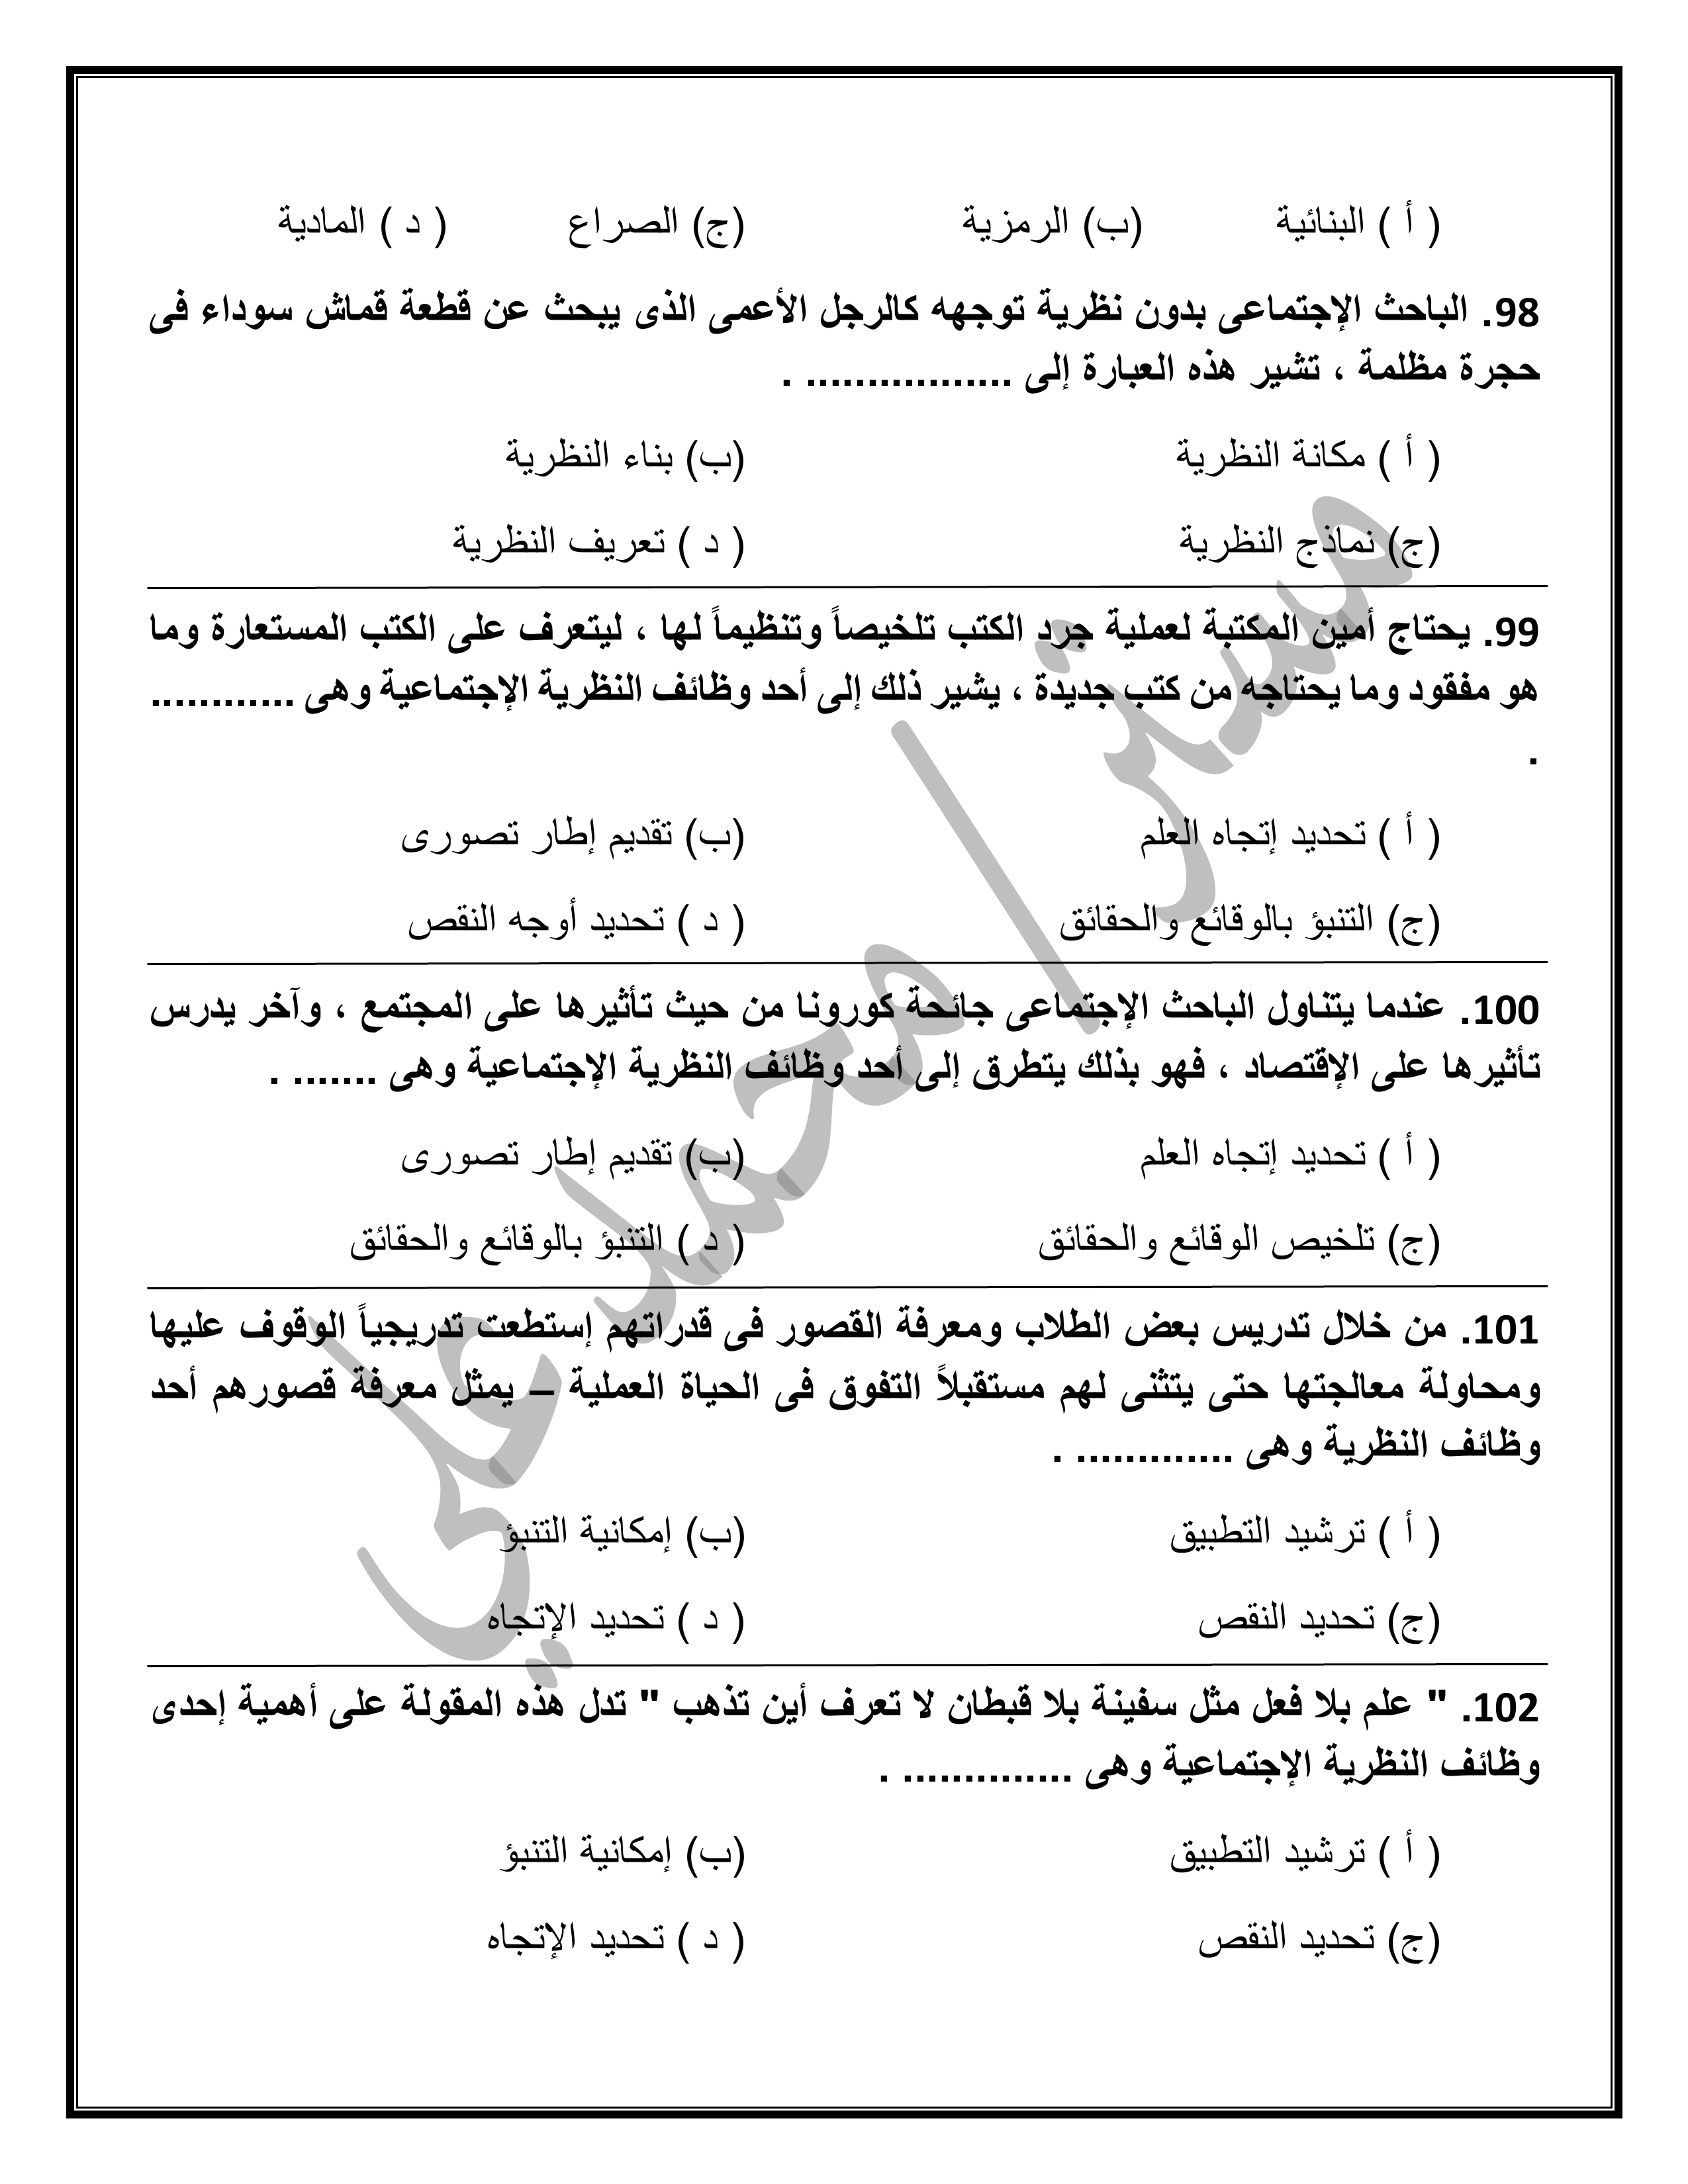 ( أ ) البنائية (ب) الرمزية (ج) الصراع ( د ) المادية
98. الباحث الإجتماعى بدون نظرية توجهه كالرجل الأعمى الذى يبحث عن قطعة قماش سوداء فى
حجرة مظلمة ، تشير هذه العبارة إلى ................. .
( أ ) مكانة النظرية (ب) بناء النظرية
(ج) نماذج النظرية ( د ) تعريف النظرية
99. يحتاج أمين المكتبة لعملية جرد الكتب تلخيصاً وتنظيماً لها ، ليتعرف على الكتب المستعارة وما
هو مفقود وما يحتاجه من كتب جديدة ، يشير ذلك إلى أحد وظائف النظرية الإجتماعية وهى ............
.
( أ ) تحديد إتجاه العلم (ب) تقديم إطار تصورى
(ج) التنبؤ بالوقائع والحقائق ( د ) تحديد أوجه النقص
100. عندما يتناول الباحث الإجتماعى جائحة كورونا من حيث تأثيرها على المجتمع ، وآخر يدرس
تأثيرها على الإقتصاد ، فهو بذلك يتطرق إلى أحد وظائف النظرية الإجتماعية وهى ....... .
( أ ) تحديد إتجاه العلم (ب) تقديم إطار تصورى
(ج) تلخيص الوقائع والحقائق ( د ) التنبؤ بالوقائع والحقائق
101. من خلال تدريس بعض الطلاب ومعرفة القصور فى قدراتهم إستطعت تدريجياً الوقوف عليها
ومحاولة معالجتها حتى يتثنى لهم مستقبلاً التفوق فى الحياة العملية – يمثل معرفة قصورهم أحد
وظائف النظرية وهى ............. .
( أ ) ترشيد التطبيق (ب) إمكانية التنبؤ
(ج) تحديد النقص ( د ) تحديد الإتجاه
102. " علم بلا فعل مثل سفينة بلا قبطان لا تعرف أين تذهب " تدل هذه المقولة على أهمية إحدى
وظائف النظرية الإجتماعية وهى .............. .
( أ ) ترشيد التطبيق (ب) إمكانية التنبؤ
(ج) تحديد النقص ( د ) تحديد الإتجاه
مستر/محمد علي